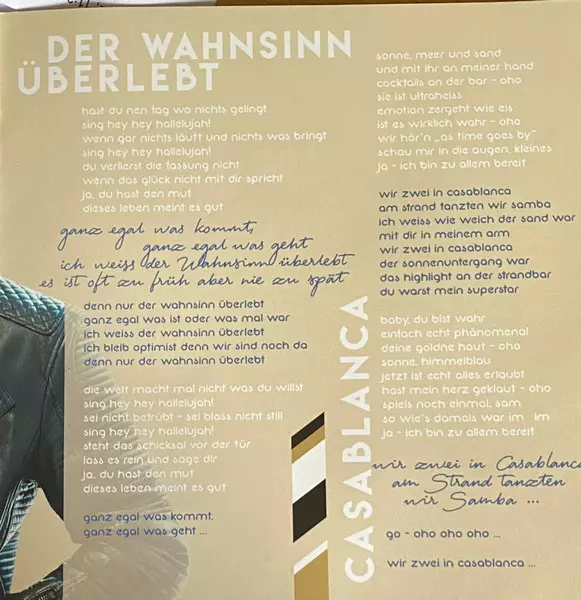 DER WAHNSINN
ÜBERLEBT
hast du nen tag wo nichts gelingt
sing hey hey hallelujah!
wenn gar nichts läuft und nichts was bringt
sing hey hey hallelujah!
du verlierst die fassung nicht
wenn das glück nicht mit dir spricht
ja, du hast den mut
dieses leben meint es gut
ganz egal was kommt,
ganz egal was geht
ich weiss der Wahnsinn überlebt
es ist oft zu früh aber nie zu spät
denn nur der wahnsinn überlebt
ganz egal was ist oder was mal war
ich weiss der wahnsinn überlebt
ich bleib optimist denn wir sind noch da
denn nur der wahnsinn überlebt
die welt macht mal nicht was du willst
sing hey hey hallelujah!
sei nicht betrübt - sei bloss nicht still
sing hey hey hallelujah!
steht das schicksal vor der tür
lass es rein und sage dir
ja, du hast den mut
dieses leben meint es gut
ganz egal was kommt,
ganz egal was geht ...
CASABLANCA
sonne, meer und sand
und mit ihr an meiner hand
cocktails an der bar - oho
sie ist ultraheiss
emotion zergeht wie eis
ist es wirklich wahr - oho
wir hör'n „as time goes by"
schau mir in die augen, kleines
ja - ich bin zu allem bereit
wir zwei in casablanca
am strand tanzten wir samba
ich weiss wie weich der sand war
mit dir in meinem arm
wir zwei in casablanca
der sonnenuntergang war
das highlight an der strandbar
du warst mein superstar
baby, du bist wahr
einfach echt phänomenal
deine goldne haut - oho
sonne, himmelblau
jetzt ist echt alles erlaubt
hast mein herz geklaut - oho
spiels noch einmal, sam
so wie's damals war im Im
ja - ich bin zu allem bereit
wir zwei in Casablanca
am Strand tanzten
wir Samba ...
go - oho oho oho ...
wir zwei in casablanca ...